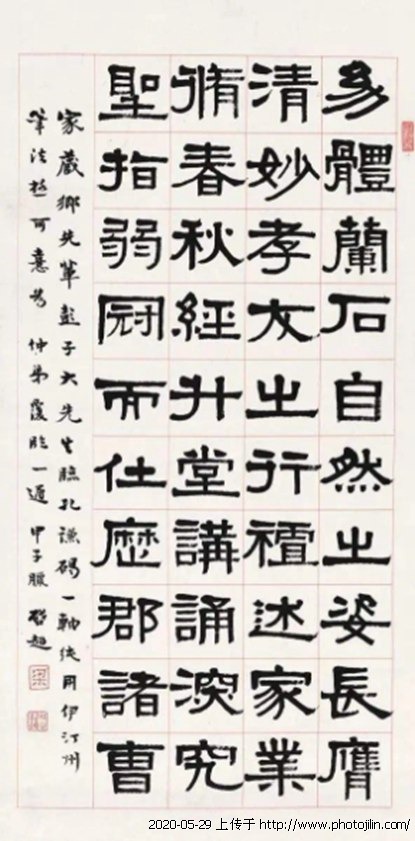 幼體蘭石自然之姿長膺
清妙孝友之行襢述家業
脩春秋經升堂講誦深究
聖指弱冠而仕歷郡諸曹
家藏鄉先輩彭子大先生臨孔謙碣一軸純用伊汀州
筆法極可意為仲弟覆臨一過 甲子臘 啟超
2020-05-29 上传于 http://www.photojilin.com/